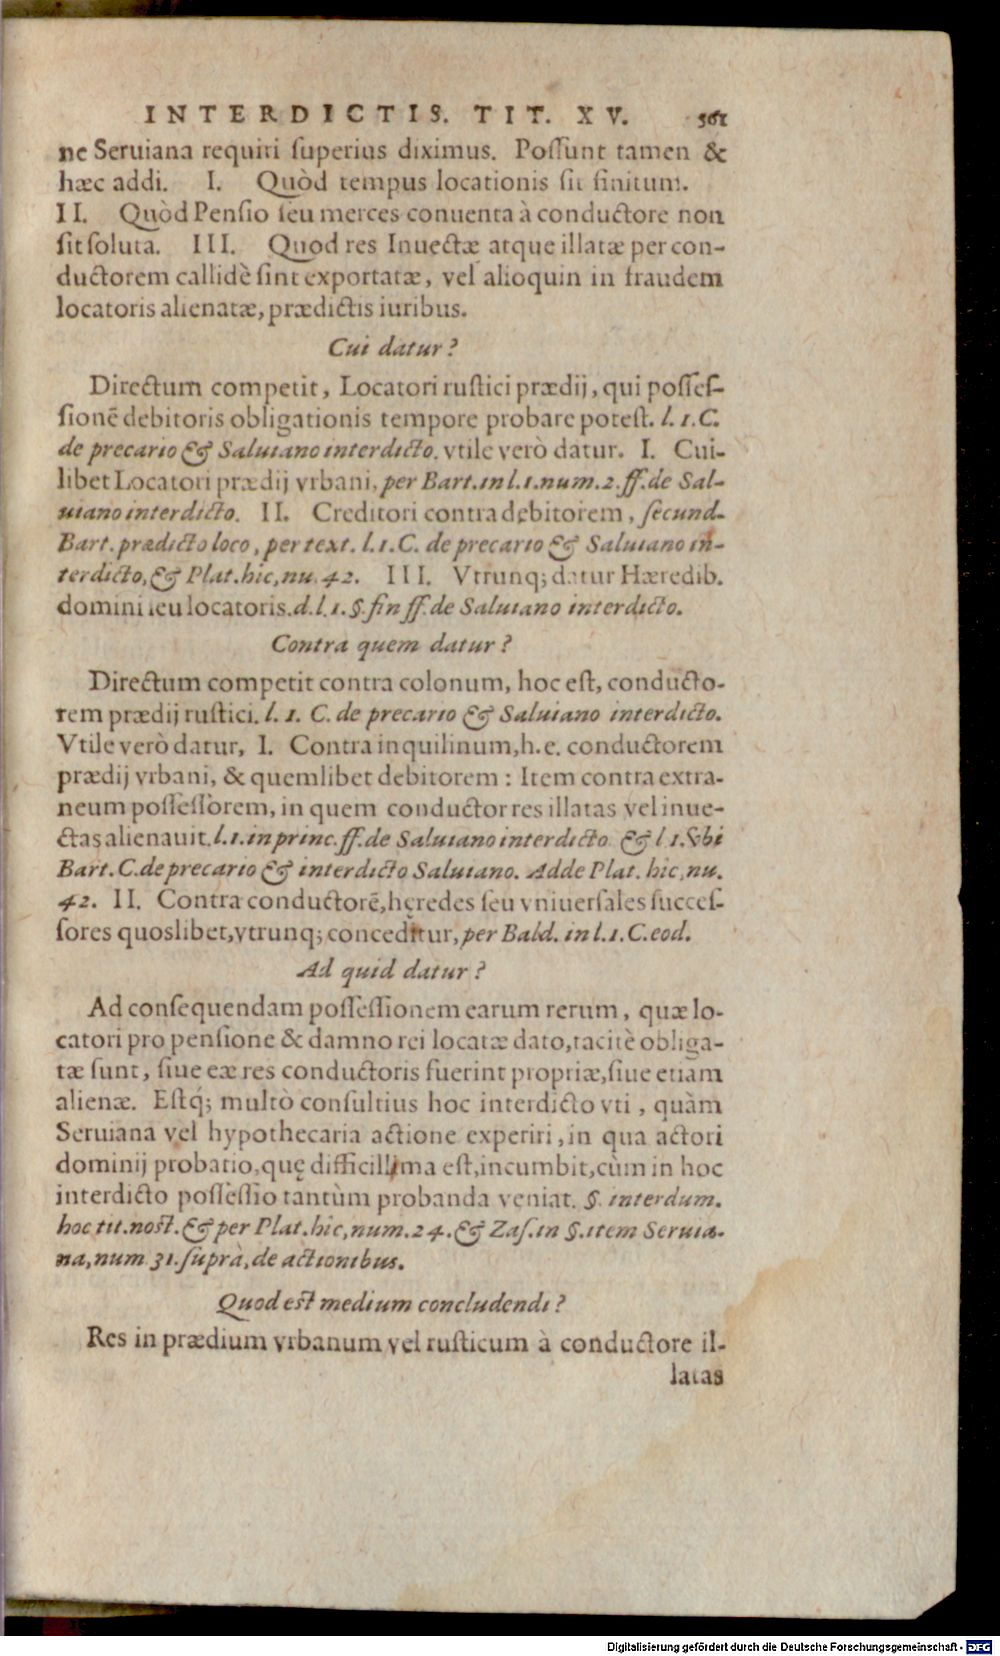 INTERDICTIS. TIT. XV. 561
ne Seruiana requiri ſuperius diximus. Poſſunt tamen &
hæc addi. I. Quòd tempus locationis ſit finitum.
II. Quòd Penſio ſeu merces conuenta à conductore non
ſit ſoluta. III. Quod res Inuectæ atque illatæ per con-
ductorem callidè ſint exportatæ, vel alioquin in fraudem
locatoris alienatæ, prædictis iuribus.
Cui datur?
Directum competit, Locatori ruſtici prædij, qui poſſeſ-
ſionē debitoris obligationis tempore probare poteſt. l. 1. C.
de precario & Saluiano interdicto. vtile verò datur. I. Cui-
libet Locatori prædij vrbani, per Bart. in l. 1. num. 2. ff. de Sal-
uiano interdicto. II. Creditori contra debitorem, ſecund.
Bart. prædicto loco, per text. l. 1. C. de precario & Saluiano in-
terdicto, & Plat. hic, nu. 42. III. Vtrunq; datur Hæredib.
domini ſeu locatoris. d. l. 1. §. fin ff. de Saluiano interdicto.
Contra quem datur?
Directum competit contra colonum, hoc eſt, conducto-
rem prædij ruſtici. l. 1. C. de precario & Saluiano interdicto.
Vtile verò datur, I. Contra inquilinum, h. e. conductorem
prædij vrbani, & quemlibet debitorem: Item contra extra-
neum poſſeſſorem, in quem conductor res illatas vel inue-
ctas alienauit. l. 1. in princ. ff. de Saluiano interdicto & l 1. & ibi
Bart. C. de precario & interdicto Saluiano. Adde Plat. hic, nu.
42. II. Contra conductorē, hęredes ſeu vniuerſales ſucceſ-
ſores quoslibet, vtrunq; conceditur, per Bald. in l. 1. C. eod.
Ad quid datur?
Ad conſequendam poſſeſſionem earum rerum, quæ lo-
catori pro penſione & damno rei locatæ dato, tacitè obliga-
tæ ſunt, ſiue eæ res conductoris fuerint propriæ, ſiue etiam
alienæ. Eſtq́; multò conſultius hoc interdicto vti, quàm
Seruiana vel hypothecaria actione experiri, in qua actori
dominij probatio, quę difficillima eſt, incumbit, cùm in hoc
interdicto poſſeſſio tantùm probanda veniat. §. interdum.
hoc tit. noſt. & per Plat. hic, num. 24. & Zaſ. in §. item Seruia-
na, num 31. ſuprà, de actionibus.
Quod eſt medium concludendi?
Res in prædium vrbanum vel ruſticum à conductore il-
latas
Digitalisierung gefördert durch die Deutsche Forschungsgemeinschaft - DFG